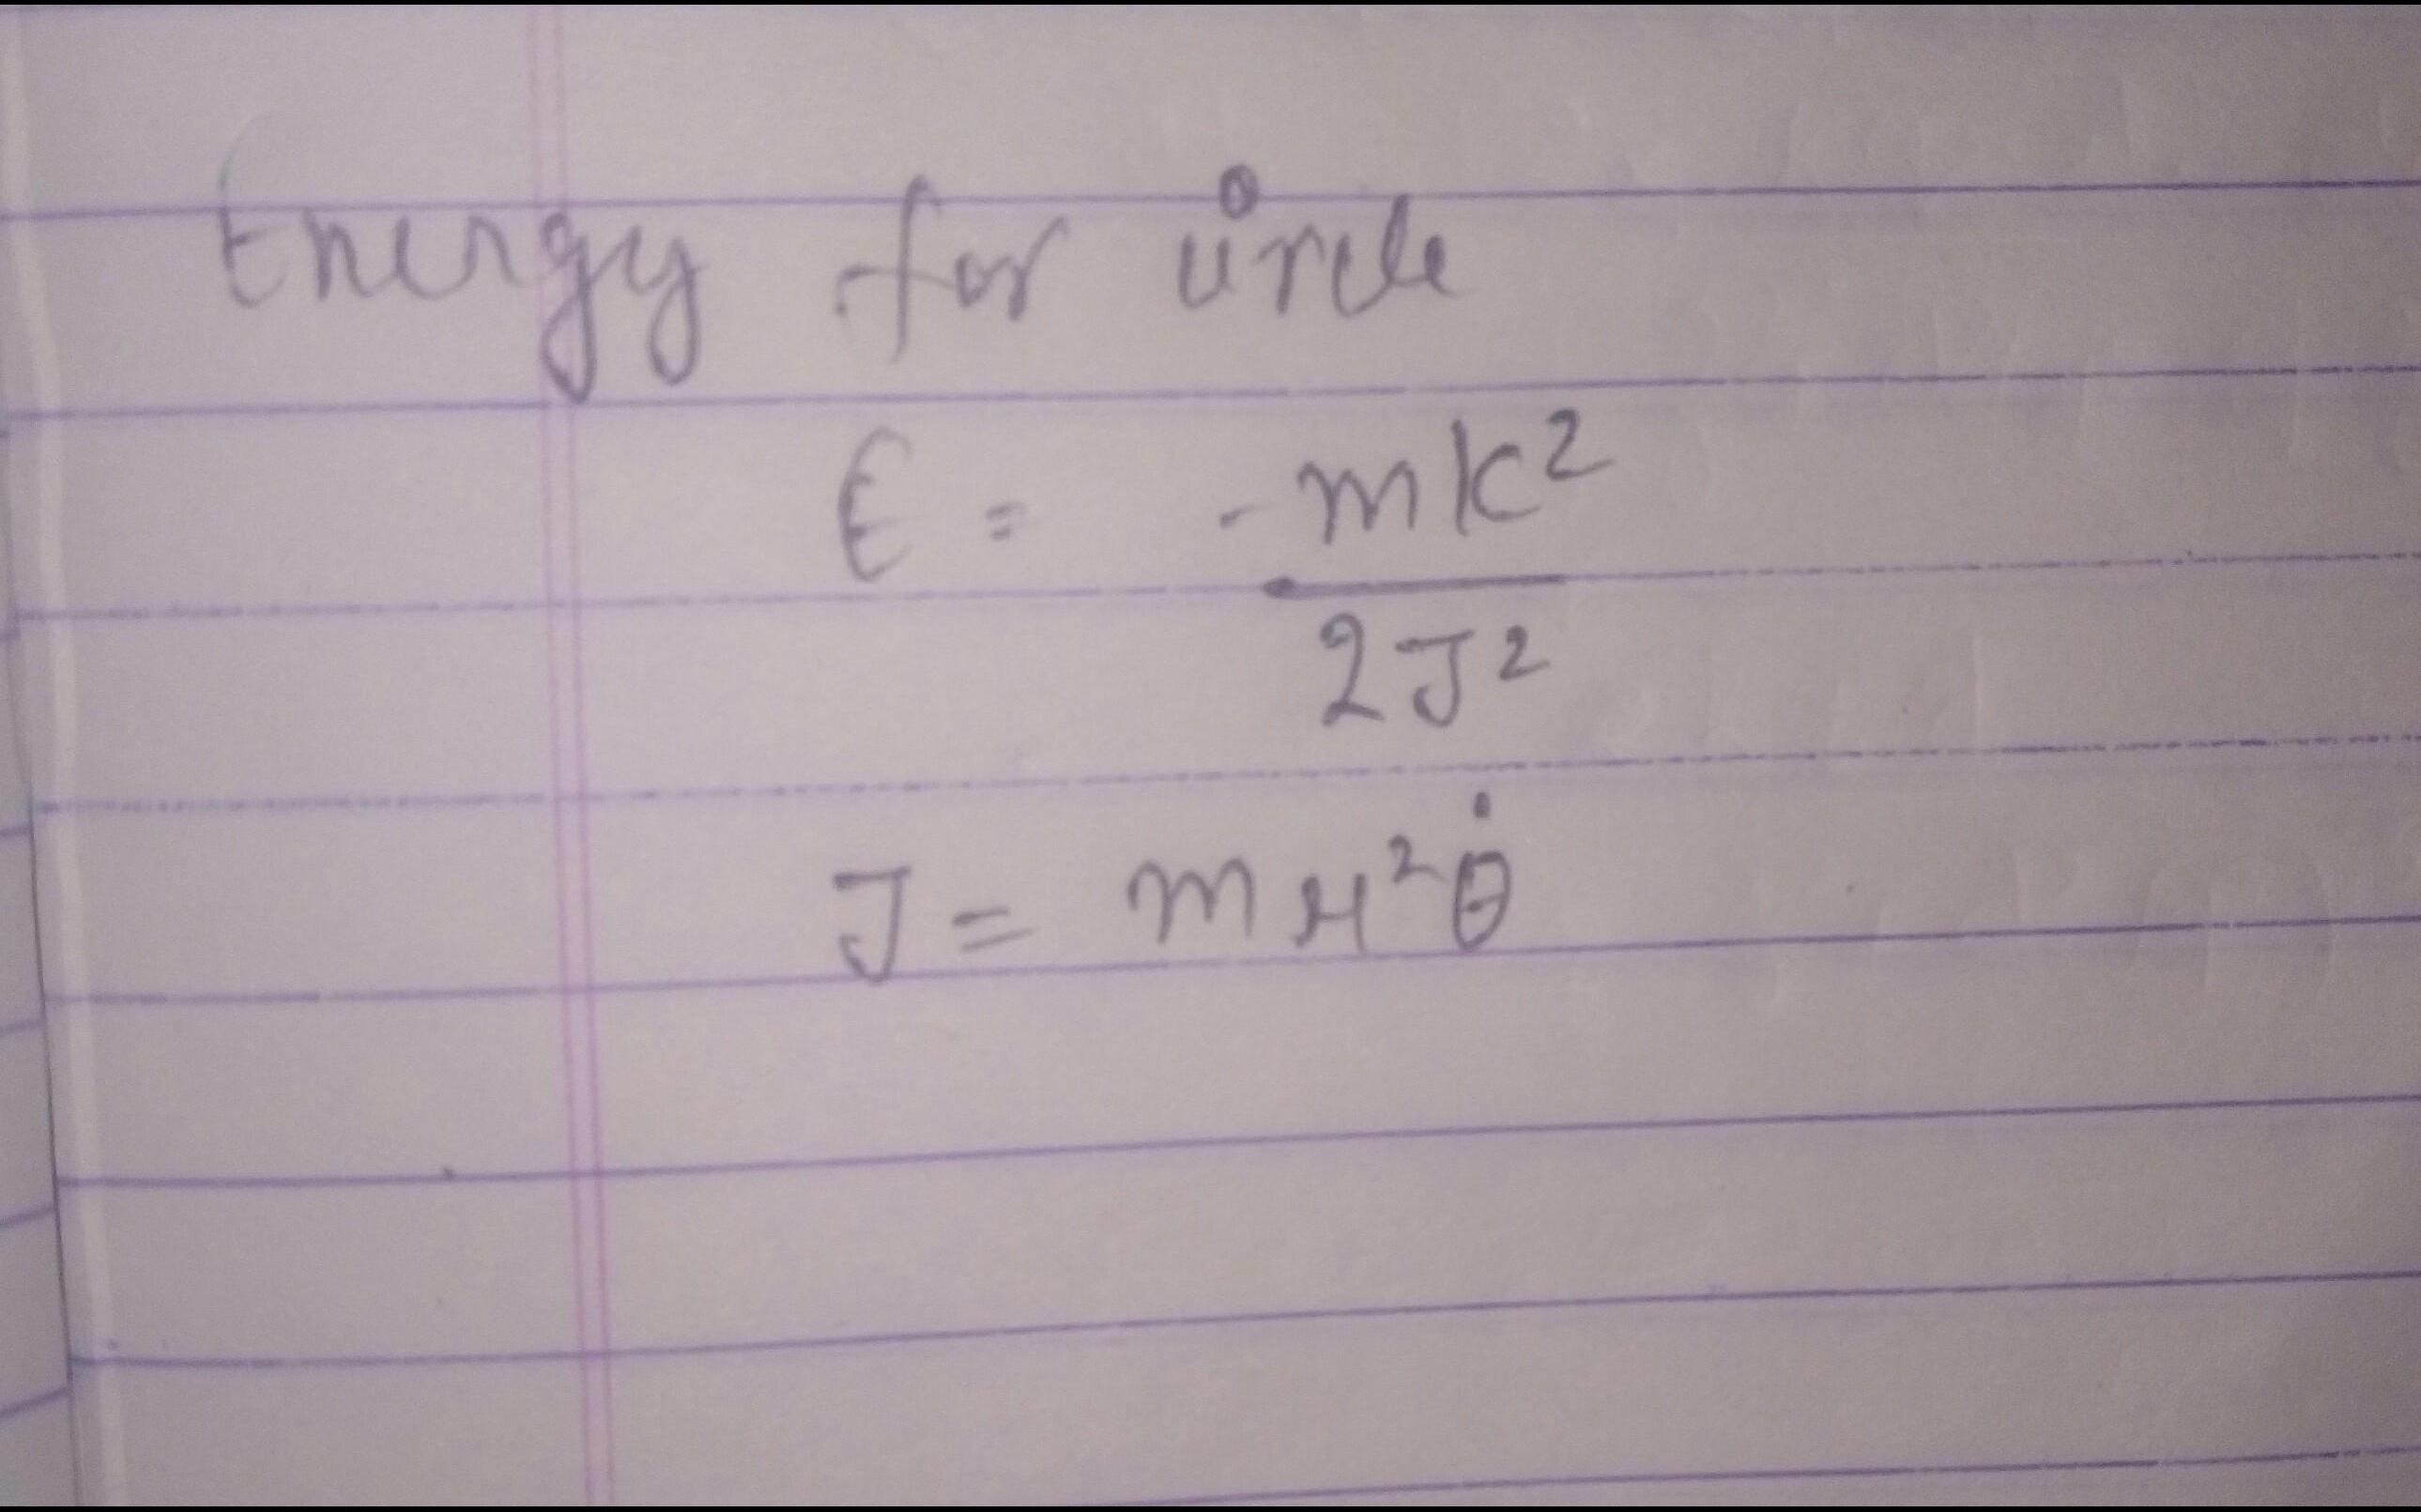 Energy for circle
E = -mk²
2J²
J = mr²θ̇